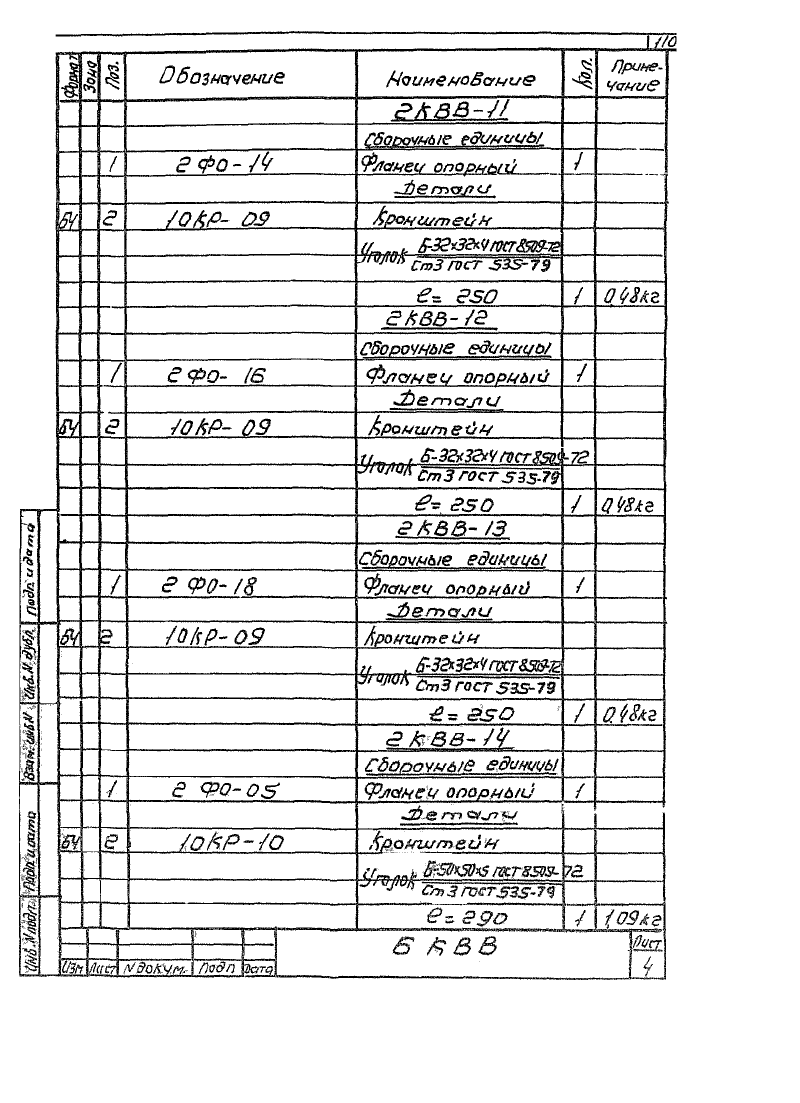 110
Формат Зона Поз. Обозначение Наименование Кол. Приме-
чание
2КВВ-11
Сборочные единицы
1 2 ФО-14 Фланец опорный 1
Детали
БЧ 2 10КР-09 Кронштейн
Уголок Б-32х32х4 гост 8509-72
Ст3 гост 535-79
ℓ= 250 1 0,48кг
2КВВ-12
Сборочные единицы
1 2 ФО-16 Фланец опорный 1
Детали
БЧ 2 10КР-09 Кронштейн
Уголок Б-32х32х4 гост 8509-72
Ст3 гост 535-79
ℓ= 250 1 0,48кг
2КВВ-13
Сборочные единицы
1 2 ФО-18 Фланец опорный 1
Детали
БЧ 2 10КР-09 Кронштейн
Уголок Б-32х32х4 гост 8509-72
Ст3 гост 535-79
ℓ= 250 1 0,48кг
2КВВ-14
Сборочные единицы
1 2 ФО-05 Фланец опорный 1
Детали
БЧ 2 10КР-10 Кронштейн
Уголок Б-50х50х5 гост 8509-72
Ст3 гост 535-79
ℓ= 290 1 1,09кг
Изм Лист N докум. Подп Дата
Б КВВ
Лист
4
Подп. и дата
Инв. N дубл.
Взам. инв. N
Подп. и дата
Инв. N подл.